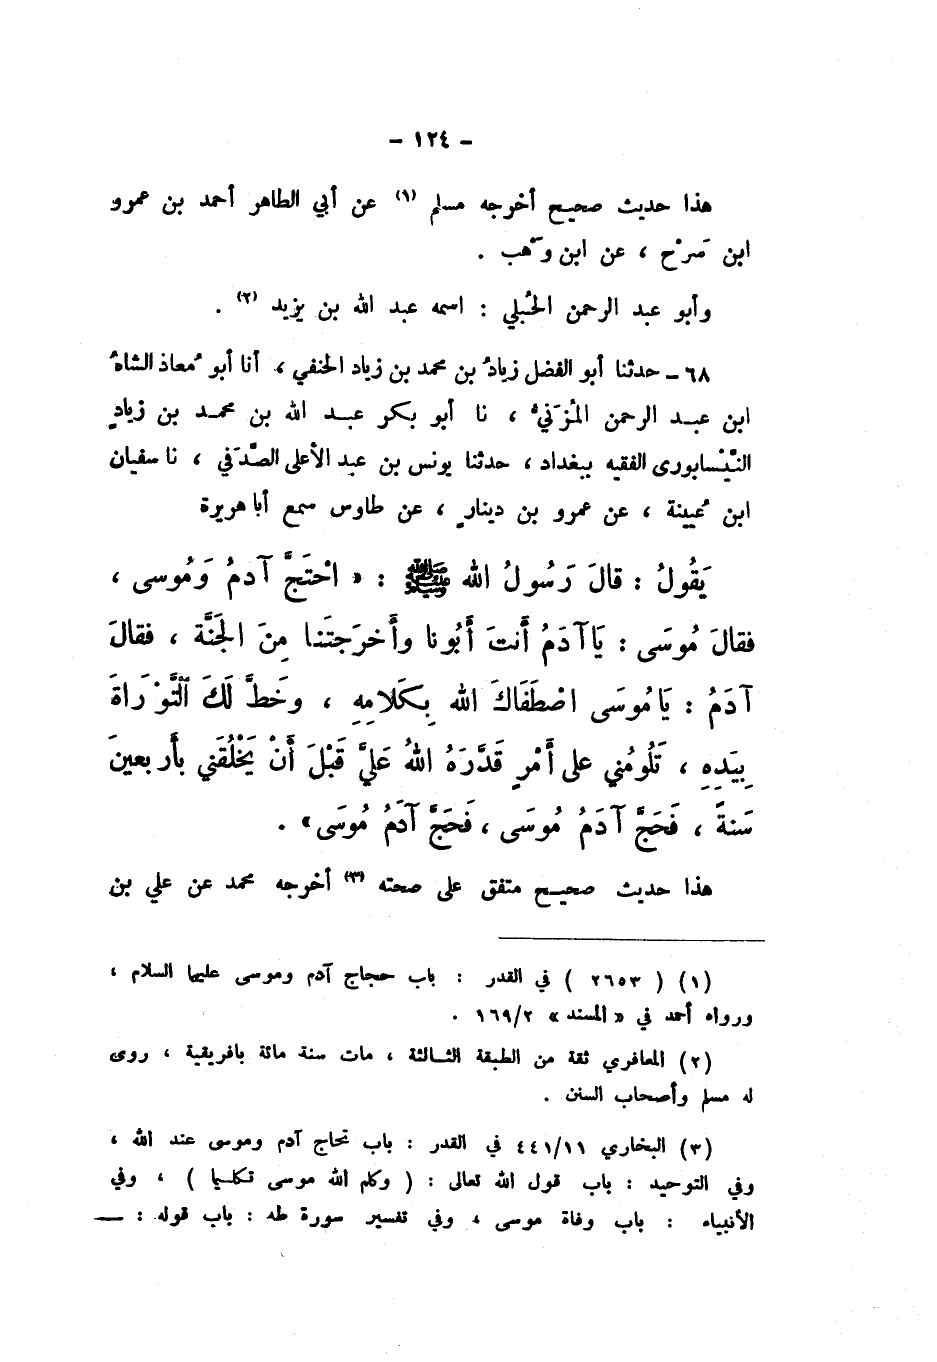 - ١٢٤ -
هذا حديث صحيح أخرجه مسلم (١) عن أبي الطاهر أحمد بن عمرو
ابن سَرْح ، عن ابن وَهْب .
وأبو عبد الرحمن الحُبلي : اسمه عبد الله بن يزيد (٢) .
٦٨ - حدثنا أبو الفضل زيادُ بن محمد بن زياد الحنفي ، أنا أبو مُعاذ الشاهُ
ابن عبد الرحمن المُزَنيُّ ، نا أبو بكر عبد الله بن محمد بن زيادٍ
النَّيْسابورى الفقيه ببغداد ، حدثنا يونس بن عبد الأعلى الصَّدَفي ، نا سفيان
ابن عُيينة ، عن عمرو بن دينارٍ ، عن طاوس سمع أبا هريرة
يَقُولُ : قالَ رَسُولُ الله ﷺ : « احْتَجَّ آدمُ وَمُوسى ،
فقالَ مُوسَى : يَاآدَمُ أَنتَ أَبُونا وأَخرَجتَنا مِنَ الجَنَّة ، فقالَ
آدَمُ : يَامُوسَى اصْطَفَاكَ الله بِكَلامِهِ ، وَخَطَّ لَكَ التَّوْرَاةَ
بِيَدِهِ ، تَلُومُني على أَمْرٍ قَدَّرَهُ اللهُ عَلَيَّ قَبْلَ أَنْ يَخْلُقَني بأَربعينَ
سَنةً ، فَحَجَّ آدَمُ مُوسَى ، فَحَجَّ آدَمُ مُوسَى» .
هذا حديث صحيح متفق على صحته (٣) أخرجه محمد عن علي بن
(١) ( ٢٦٥٣ ) في القدر : باب حجاج آدم وموسى عليهما السلام ،
ورواه أحمد في « المسند » ١٦٩/٢ .
(٢) المعافري ثقة من الطبقة الثالثة ، مات سنة مائة بافريقية ، روى
له مسلم وأصحاب السنن .
(٣) البخاري ٤٤١/١١ في القدر : باب تحاج آدم وموسى عند الله ،
وفي التوحيد : باب قول الله تعالى : ( وكلم الله موسى تكليما ) ، وفي
الأنبياء : باب وفاة موسى ، وفي تفسير سورة طه : باب قوله : —